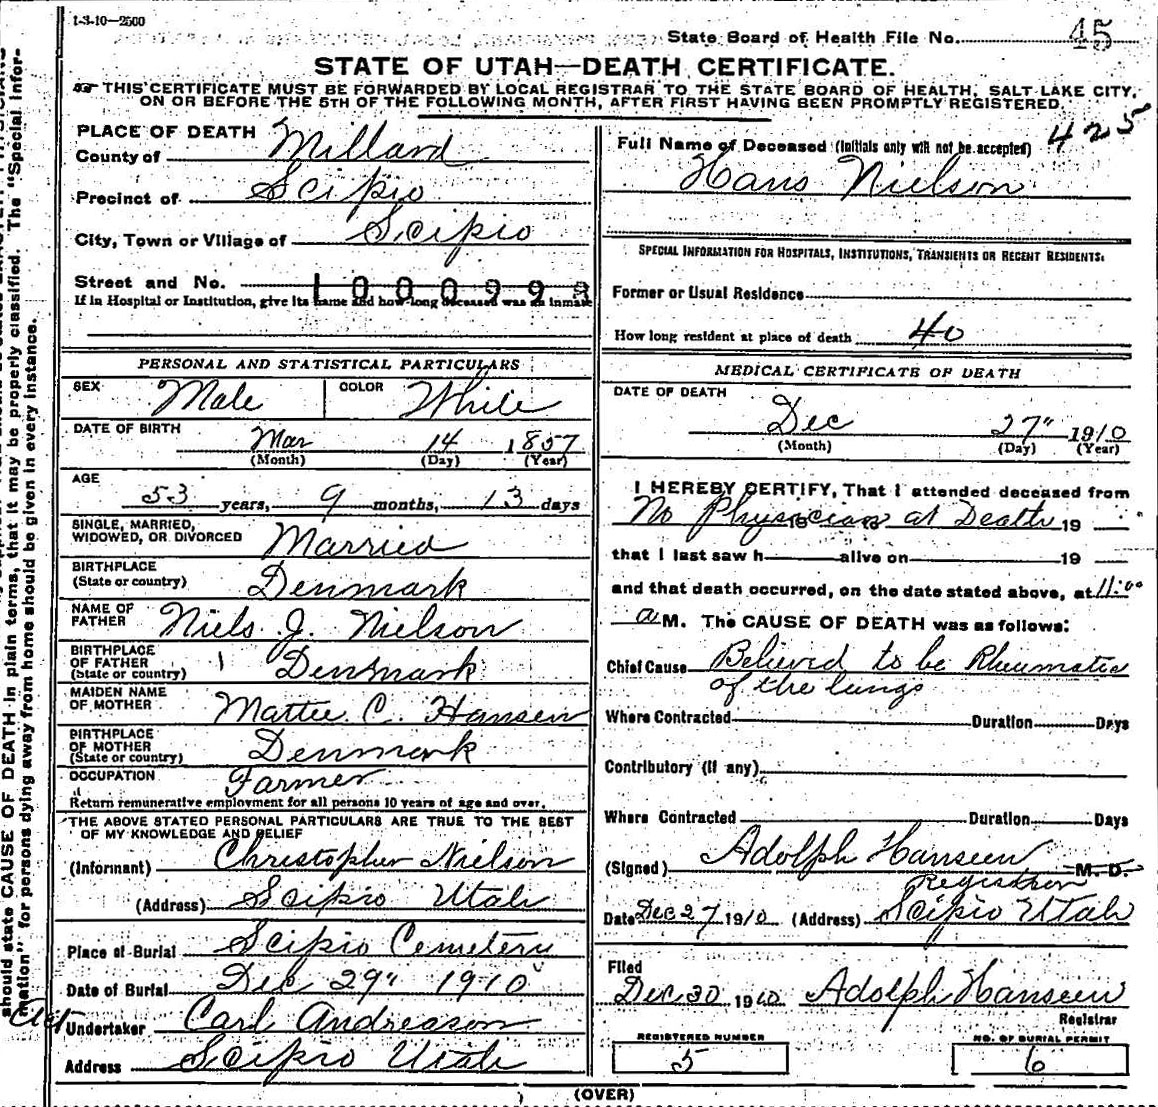 1-3-10—2500
State Board of Health File No. 45
STATE OF UTAH—DEATH CERTIFICATE.
THIS CERTIFICATE MUST BE FORWARDED BY LOCAL REGISTRAR TO THE STATE BOARD OF HEALTH, SALT LAKE CITY,
ON OR BEFORE THE 5TH OF THE FOLLOWING MONTH, AFTER FIRST HAVING BEEN PROMPTLY REGISTERED.
PLACE OF DEATH
County of Millard
Precinct of Scipio
City, Town or Village of Scipio
Street and No. 1000998
If in Hospital or Institution, give its name and how long deceased was an inmate
PERSONAL AND STATISTICAL PARTICULARS
SEX Male COLOR White
DATE OF BIRTH
Mar 14 1857
(Month) (Day) (Year)
AGE
53 years, 9 months, 13 days
SINGLE, MARRIED,
WIDOWED, OR DIVORCED Married
BIRTHPLACE
(State or country) Denmark
NAME OF
FATHER Niels J. Nielson
BIRTHPLACE
OF FATHER
(State or country) Denmark
MAIDEN NAME
OF MOTHER Mattie C. Hansen
BIRTHPLACE
OF MOTHER
(State or country) Denmark
OCCUPATION Farmer
Return remunerative employment for all persons 10 years of age and over.
THE ABOVE STATED PERSONAL PARTICULARS ARE TRUE TO THE BEST
OF MY KNOWLEDGE AND BELIEF
(Informant) Christopher Nielson
(Address) Scipio Utah
Place of Burial Scipio Cemetery
Date of Burial Dec 29" 1910
Undertaker Carl Andreason
Address Scipio Utah
425
Full Name of Deceased (Initials only will not be accepted)
Hans Nielson
SPECIAL INFORMATION FOR HOSPITALS, INSTITUTIONS, TRANSIENTS OR RECENT RESIDENTS.
Former or Usual Residence
How long resident at place of death 40
MEDICAL CERTIFICATE OF DEATH
DATE OF DEATH
Dec 27" 1910
(Month) (Day) (Year)
I HEREBY CERTIFY, That I attended deceased from
No Physician at Death 19
that I last saw h alive on 19
and that death occurred, on the date stated above, at 11:00
a M. The CAUSE OF DEATH was as follows:
Chief Cause Believed to be Rheumatis
of the lungs
Where Contracted Duration Days
Contributory (if any)
Where Contracted Duration Days
(Signed) Adolph Hanseen M. D.
Registrar
Date Dec 27 1910 (Address) Scipio Utah
Filed
Dec 30 1910 Adolph Hanseen
Registrar
REGISTERED NUMBER
5
NO. OF BURIAL PERMIT
6
(OVER)
should state CAUSE OF DEATH in plain terms, that it may be properly classified. The "Special Infor-
mation" for persons dying away from home should be given in every instance.